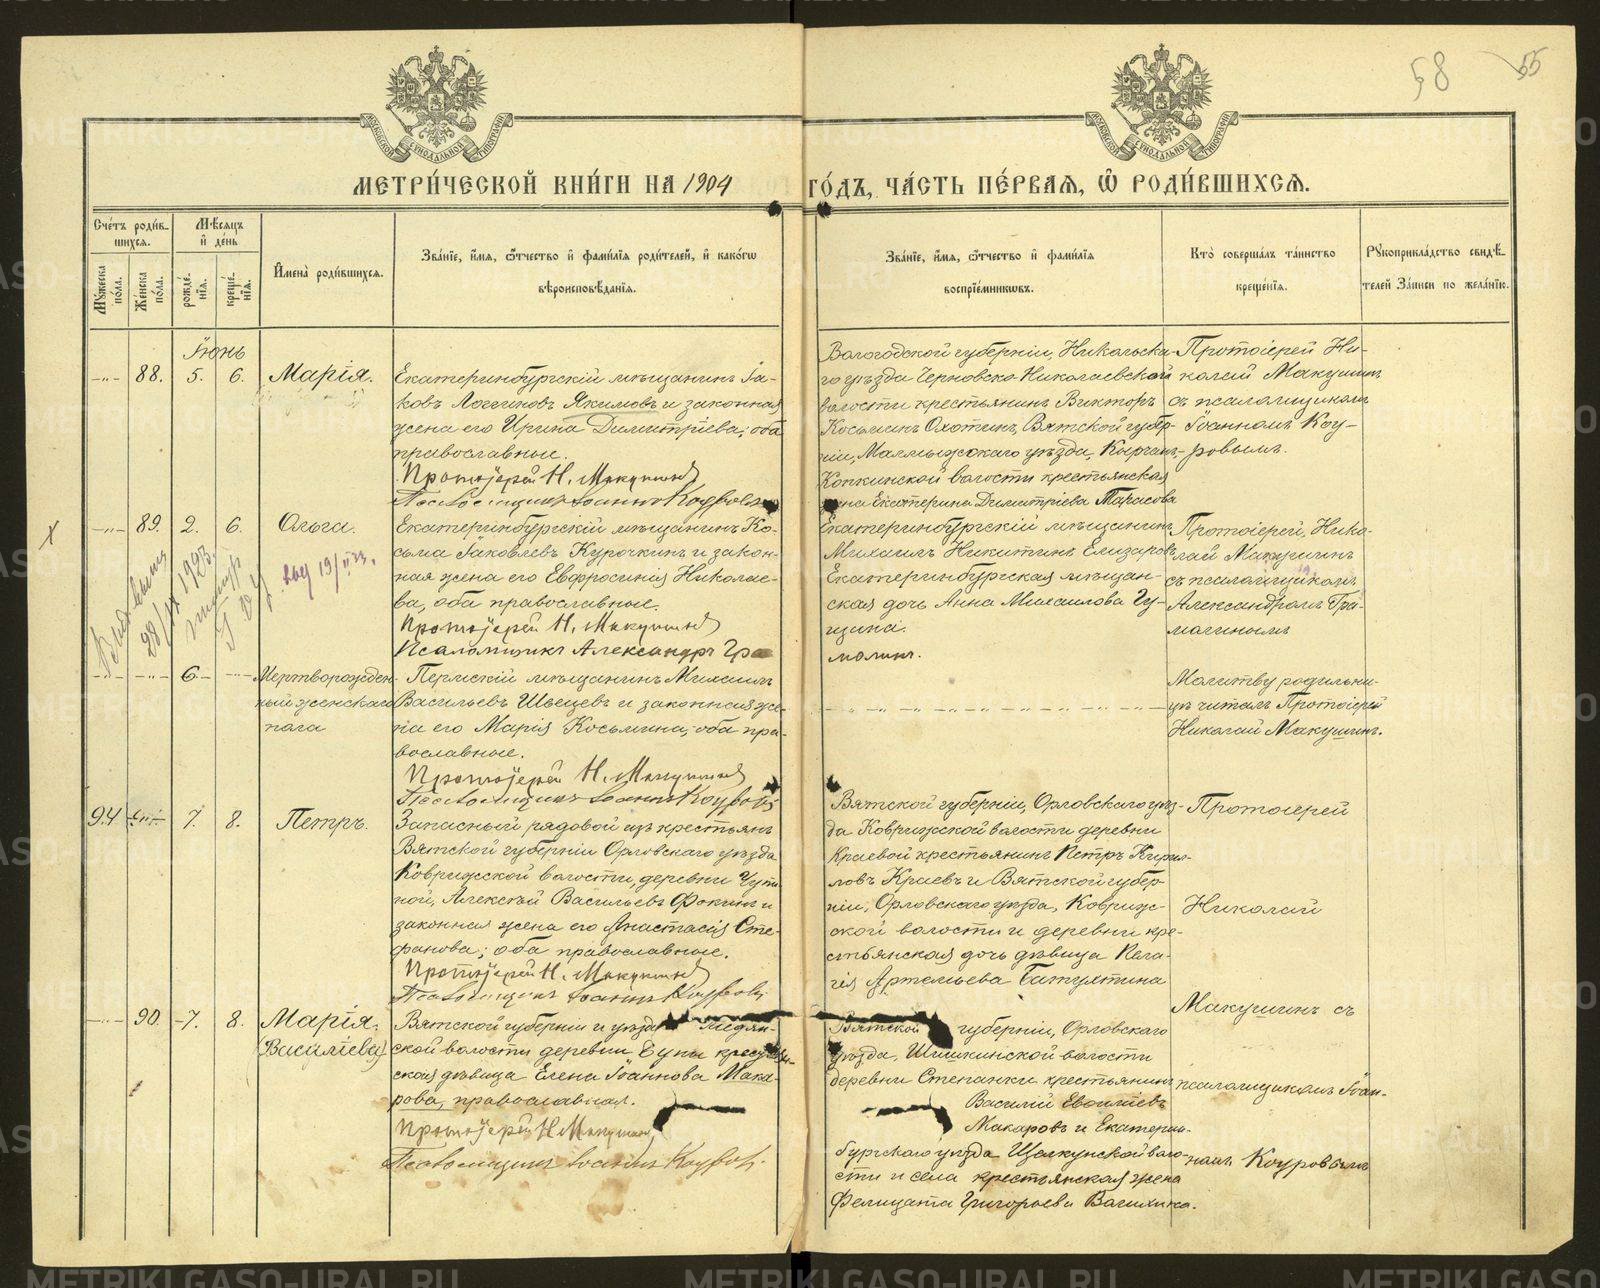 58 55
МЕТРИ́ЧЕСКОЙ КНИ́ГИ НА 1904 ГО́ДЪ, ЧА́СТЬ ПЕ́РВАЯ, Ѡ РОДИ́ВШИХСЯ.
Счетъ роди́вшихся.
Мужеска по́ла.
Же́нска по́ла.
Мѣсяцъ и де́нь
рожде́нїя.
креще́нїя.
И҆мена̀ роди́вшихся.
Зва́нїе, и҆́мя, ѻ҆́тчество и҆ фами́лїя роди́телей, и҆ како́гѡ вѣроисповѣ́данїя.
Зва́нїе, и҆́мя, ѻ҆́тчество и҆ фами́лїя воспрїе́мникѡвъ.
Кто̀ соверша́лъ та́инство креще́нїя.
Рукоприкла́дство свидѣ́телей за́писи по жела́нїю.
Іюнь
88. 5. 6. Марія.
Екатеринбургскій мѣщанинъ Іа-
ковъ Логгиновъ Якимовъ и законная
жена его Ирина Димитріева, оба
православные.
Протоіерей Н. Макушинъ
Псаломщикъ Іоаннъ Коуровъ
Вологодской губерніи, Никольска-
го уѣзда Черновско-Николаевской
волости крестьянинъ Викторъ
Косьминъ Охотинъ, Вятской губер-
ніи, Малмыжскаго уѣзда,
волости крестьянская
жена Екатерина Димитріева Тарасова
Протоіерей Ни-
колай Макушинъ
съ псаломщикомъ
Іоанномъ Коу-
ровымъ.
89. 2. 6. Ольга.
Екатеринбургскій мѣщанинъ Ко-
сьма Іаковлевъ Курочкинъ и закон-
ная жена его Евфросинія Николае-
ва, оба православные.
Протоіерей Н. Макушинъ
Псаломщикъ Александръ Гра
малинъ.
Екатеринбургскій мѣщанинъ
Михаилъ Никитинъ Елизаровъ
Екатеринбургская мѣщан-
ская дочь Анна Михаилова Гу-
щина.
Протоіерей Нико-
лай Макушинъ
съ псаломщикомъ
Александромъ Гра-
малинымъ
6 Мертворожден-
ный женскаго
пола
Пермскій мѣщанинъ Михаилъ
Васильевъ Швецевъ и законная же-
на его Марія Косьмина, оба пра-
вославные.
Протоіерей Н. Макушинъ
Псаломщикъ Іоаннъ Коуровъ
Молитву родильни-
цѣ читалъ Протоіерей
Николай Макушинъ.
94 7. 8. Петръ.
Запасный рядовой изъ крестьянъ
Вятской губерніи Орловскаго уѣзда
Коврижской волости, деревни
Алексѣй Васильевъ Фокинъ и
законная жена его Анастасія Сте-
фанова; оба православные.
Протоіерей Н. Макушинъ
Псаломщикъ Іоаннъ Коуровъ
Вятской губерніи, Орловскаго уѣз-
да Коврижской волости деревни
Краевой крестьянинъ Петръ Кирил-
ловъ Краевъ и Вятской губер-
ніи, Орловскаго уѣзда, Ковриж-
ской волости и деревни кре-
стьянская дочь дѣвица Пела-
гія Артемьева
Протоіерей
Николай
Макушинъ съ
псаломщикомъ Іоан-
номъ Коуровымъ
90. 7. 8. Марія.
(Василіева)
Вятской губерніи и уѣзда
ской волости деревни крестьян-
ская дѣвица Елена Іоаннова Мака-
рова, православная.
Протоіерей Н. Макушинъ
Псаломщикъ Іоаннъ Коуровъ.
Вятской губерніи, Орловскаго
уѣзда, Шишкинской волости
деревни Степанки крестьянинъ
Василій
Макаровъ и Екатерин-
бургскаго уѣзда Щелкунской воло-
сти и села крестьянская жена
Фелицата Григорьева